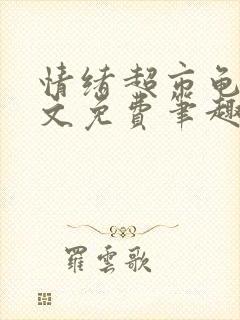 情绪超市龟
文免费笔趣
羅雲歌